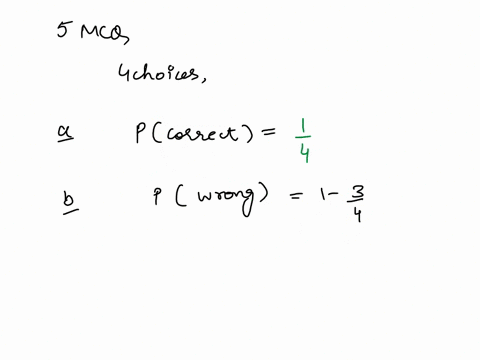 5 MCQs,
4 choices,
a P(correct) = 1/4
b P(wrong) = 1 - 3/4